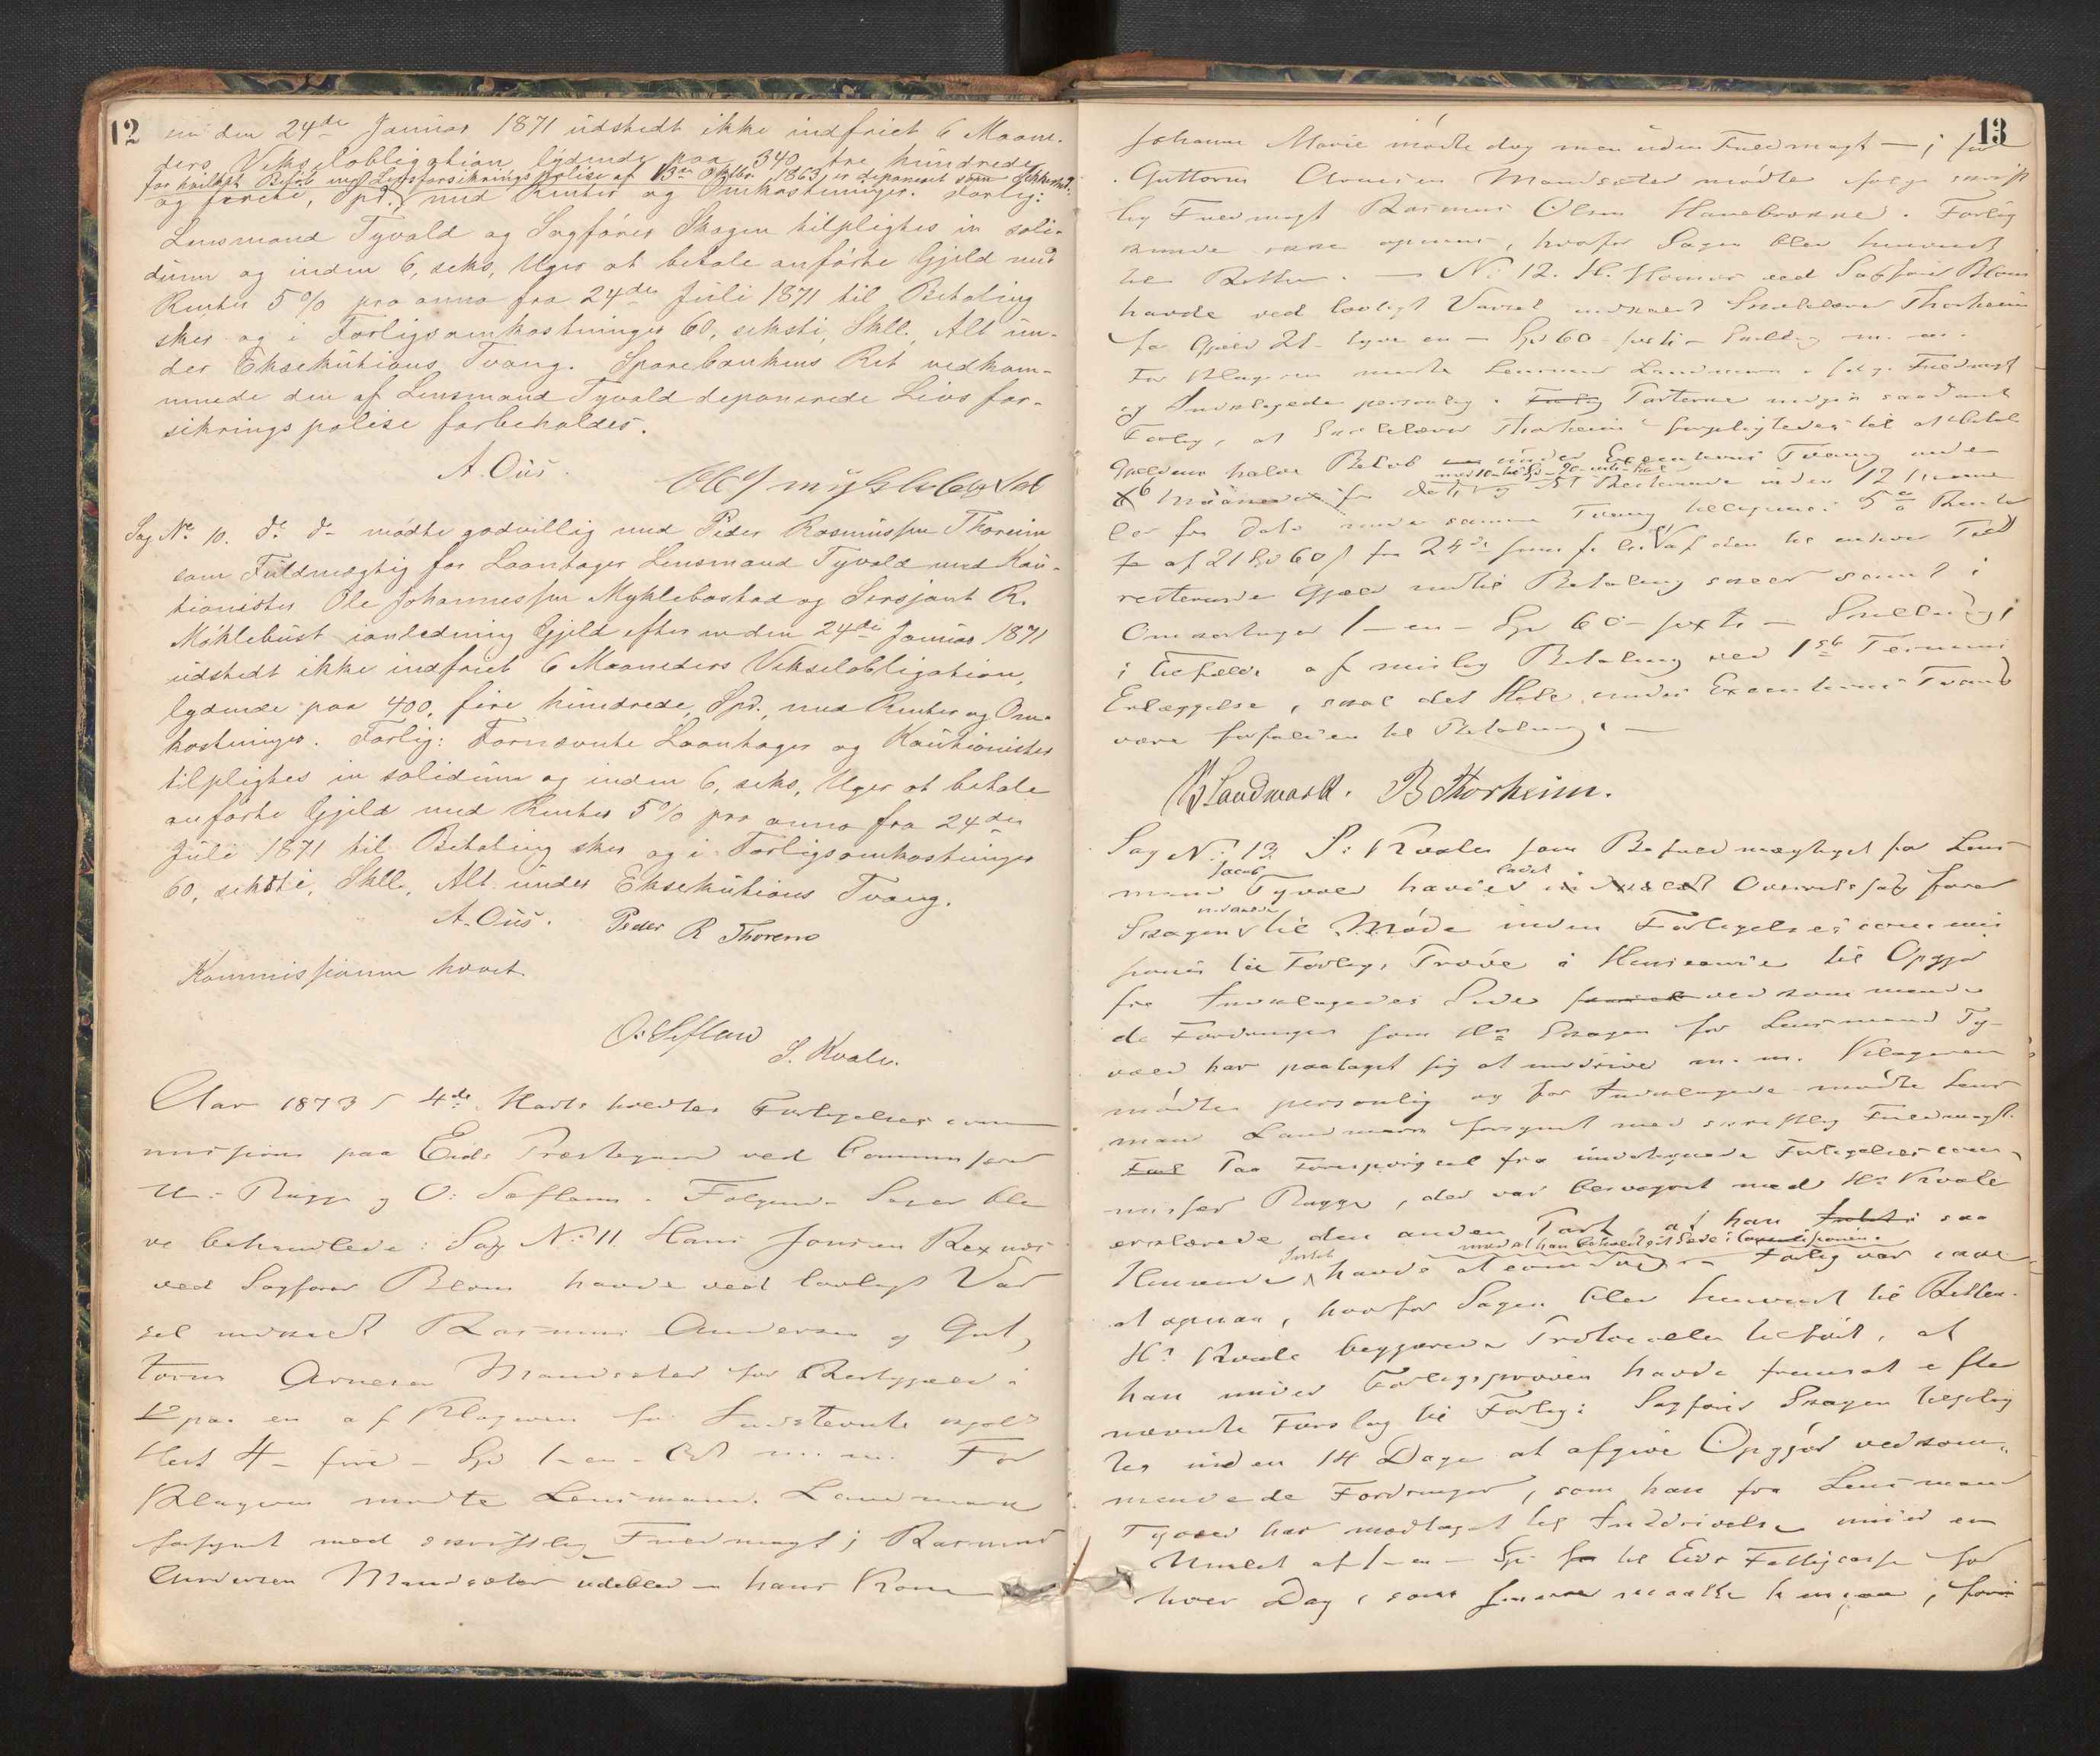 12
en den 24de Januar 1871 udstedt ikke indfriet 6 Maane-
ders Vekselobligation lydende paa 340, tre hundrede
for hvilket Beløb en Livsforsikrings polise af 13de Oktbr. 1863, er deponeret som Sikkerhed.
og førti, Spd. med Renter og Omkostninger. Forlig:
Lensmand Tyvold og Sagfører Skagen tilpligtes in soli-
dum og inden 6, seks, Uger at betale anførte Gjeld med
Renter 5% pro anno fra 24de Juli 1871 til Betaling
sker og i Forligsomkostninger 60, seksti, Skll. Alt un-
der Eksekutions Tvang. Sparebankens Ret vedkom-
mende den af Lensmand Tyvold deponerede Livsfor-
sikrings polise forbeholdes.
A. Ous.
Sag No 10. do do mødte godvillig med Peder Rasmussen Thoreim
som Fuldmægtig for Laantager Lensmand Tyvold med Kau-
tionister Ole Johannessen Myklebostad og Sersjant R.
Møklebust ianledning Gjeld efter en den 24de Januar 1871
udstedt ikke indfriet 6 Maaneders Vekselobligation,
lydende paa 400, fire hundrede, Spd., med Renter og Om-
kostninger. Forlig: Fornævnte Laantager og Kautionister
tilpligtes in solidum og inden 6, seks, Uger at betale
anførte Gjeld med Renter 5% pro anno fra 24de
Juli 1871 til Betaling sker og i Forligsomkostninger
60, seksti, Skll. Alt under Eksekutions Tvang.
A. Ous. Peder R Thoreim
Kommissionen hævet.
O. Sefland
S. Kvale.
Aar 1873 4de Marts holdtes Forligelsescom
mission paa Eids Præstegaard ved Commissær
Rugge og O: Sefland. Følgende Sager ble
ve behandlede: Sag No 11. Hans Jonsen
ved Sagfører Blom havde ved lovligt Var
sel indkaldt Rasmus Andersen og Gut,
torm Arnesen Mandsæter for Restgjæld
paa en af Klageren for Indstevnte
Hest 4 - fire - Spd 1 - en - Ort m. m. For
Klageren mødte Lensmand Landmark
forsynt med skriftlig Fuldmagt; Rasmus
Andersen Mandsæter udeblev - hans Kone
13
Johanne Marie mødte dog men uden Fuldmagt - ; for
Guttorm Arnesen Mandsæter mødte ifølge skrift
lig Fuldmagt Rasmus Olsen. Forlig
kunde ikke opnaaes, hvorfor Sagen blev henvist
til Retten. - No 12. H. ved Sagfører Blom
havde ved lovligt Varsel indkaldt Skolelærer Thorheim
for Gjæld 21 - tyve en - Spd 60 - sexti - Skilling m. m.
For Klageren mødte Lensmand Landmark ifølge Fuldmagt
og Indklagede personlig. Forlig Parterne indgik saadant
Forlig, at Skolelærer Thorheim forpligtedes til at betale
Gjældens halve Beløb under Executions Tvang inden
6 Maaneder fra Dato og det Resterende inden 12 Maane
der fra Dato under samme Tvang tilligemed 5% Rente
af 21 Spd 60 fra 24de
resterende Gjæld indtil Betaling skeer samt i
Omkostninger 1 - en - Spd 60 - sexti - Skilling;
i Tilfælde af mislig Betaling ved 1ste Termins
Erlæggelse, skal det Hele under Executions Tvang
være forfalden til Betaling. -
Landmark. B Thorheim.
Sag No 13 S: Kvale som Befuldmægtiget for Lens
mand Jacob Tyvold havde ladet indkaldt Overretssagfører
Skagen indkalde til Møde inden Forligelsescommis
sionen til Forligs Prøve i Henseende til Opgjør
fra Indklagedes Side vedkommende
de Fordringer som Hr Skagen for Lensmand Ty-
vold har paataget sig at inddrive m. m. Klageren
mødte personlig og for Indklagede mødte Lens
mand Landmark forsynt med skriftlig Fuldmagt.
Paa Forespørgsel fra undertegnede Forligelsescom-
missær Rugge, der var besvogret med Hr Kvale
erklærede den anden Part, at han i saa
Henseende Intet havde at erindre mod at han beholdt sit Sæde i Commissionen. - Forlig var ikke
at opnaa, hvorfor Sagen blev henvist til Retten.
Hr Kvale begjærede Protocollen tilført, at
han under Forligsprøven havde fremsat efter
nævnte Forslag til Forlig: Sagfører Skagen tilplig
tes inden 14 Dage at afgive Opgjør vedkom-
mende de Fordringer, som han fra Lensmand
Tyvold har modtaget til Inddrivelse under en
Mulct af 1 - en - Spd til Eids Fattigcasse for
hver Dag, som maatte hengaa,